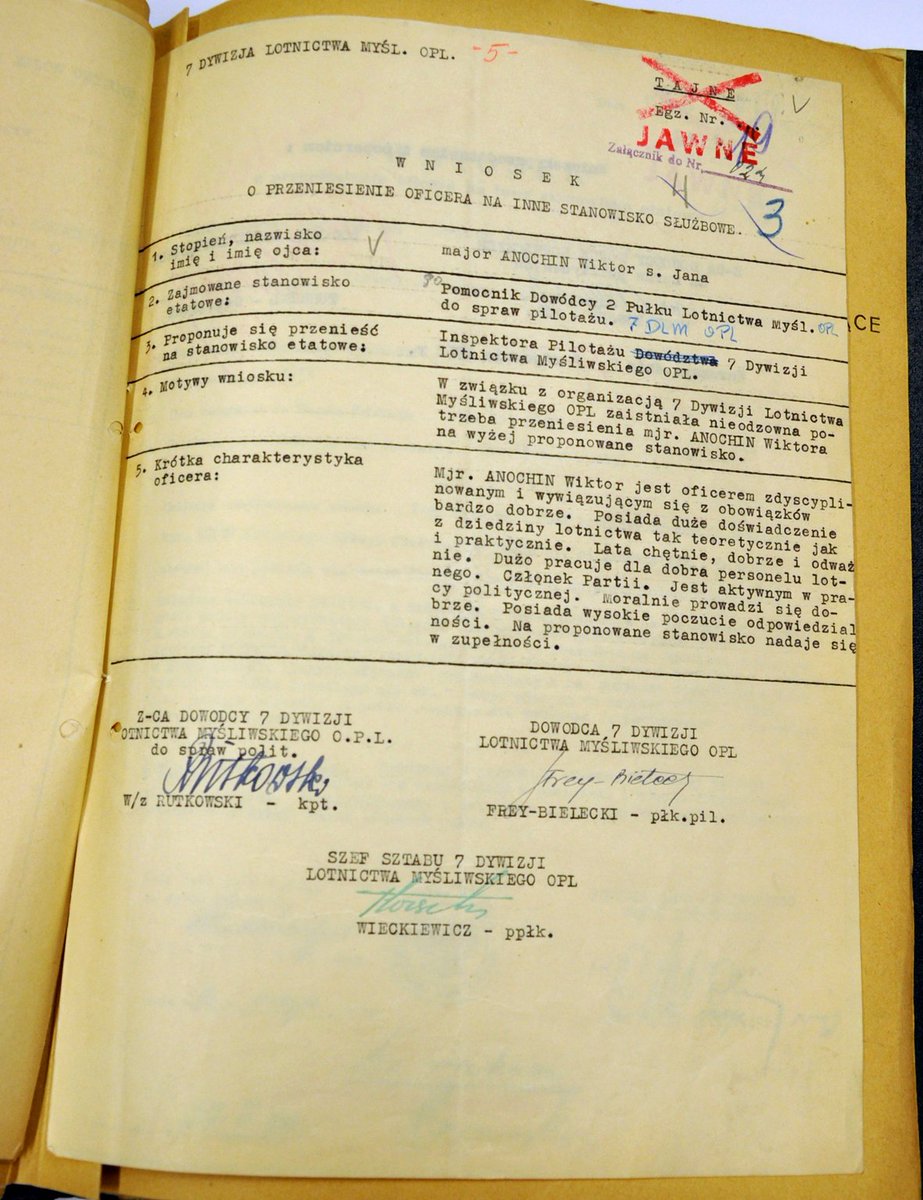 7 DYWIZJA LOTNICTWA MYŚL. OPL. -5-
TAJNE
Egz. Nr.
JAWNE
Załącznik do Nr.
19
4
3
WNIOSEK
O PRZENIESIENIE OFICERA NA INNE STANOWISKO SŁUŻBOWE.
1. Stopień, nazwisko
imię i imię ojca:
major ANOCHIN Wiktor s. Jana
2. Zajmowane stanowisko
etatowe:
Pomocnik Dowódcy 2 Pułku Lotnictwa Myśl. OPL
do spraw pilotażu. 7 DLM OPL
3. Proponuje się przenieść
na stanowisko etatowe:
Inspektora Pilotażu Dowództwa 7 Dywizji
Lotnictwa Myśliwskiego OPL.
4. Motywy wniosku:
W związku z organizacją 7 Dywizji Lotnictwa
Myśliwskiego OPL zaistniała nieodzowna po-
trzeba przeniesienia mjr. ANOCHIN Wiktora
na wyżej proponowane stanowisko.
5. Krótka charakterystyka
oficera:
Mjr. ANOCHIN Wiktor jest oficerem zdyscypli-
nowanym i wywiązującym się z obowiązków
bardzo dobrze. Posiada duże doświadczenie
z dziedziny lotnictwa tak teoretycznie jak
i praktycznie. Lata chętnie, dobrze i odważ
nie. Dużo pracuje dla dobra personelu lot-
nego. Człǫnek Partii. Jest aktywnym w pra-
cy politycznej. Moralnie prowadzi się do-
brze. Posiada wysokie poczucie odpowiedzial
ności. Na proponowane stanowisko nadaje się
w zupełności.
Z-CA DOWODCY 7 DYWIZJI
OTNICTWA MYŚLIWSKIEGO O.P.L.
do spraw polit.
Rutkowski
W/z RUTKOWSKI - kpt.
DOWODCA 7 DYWIZJI
LOTNICTWA MYŚLIWSKIEGO OPL
Frey-Bielecki
FREY-BIELECKI - płk.pil.
SZEF SZTABU 7 DYWIZJI
LOTNICTWA MYŚLIWSKIEGO OPL
WIECKIEWICZ - ppłk.
ACE